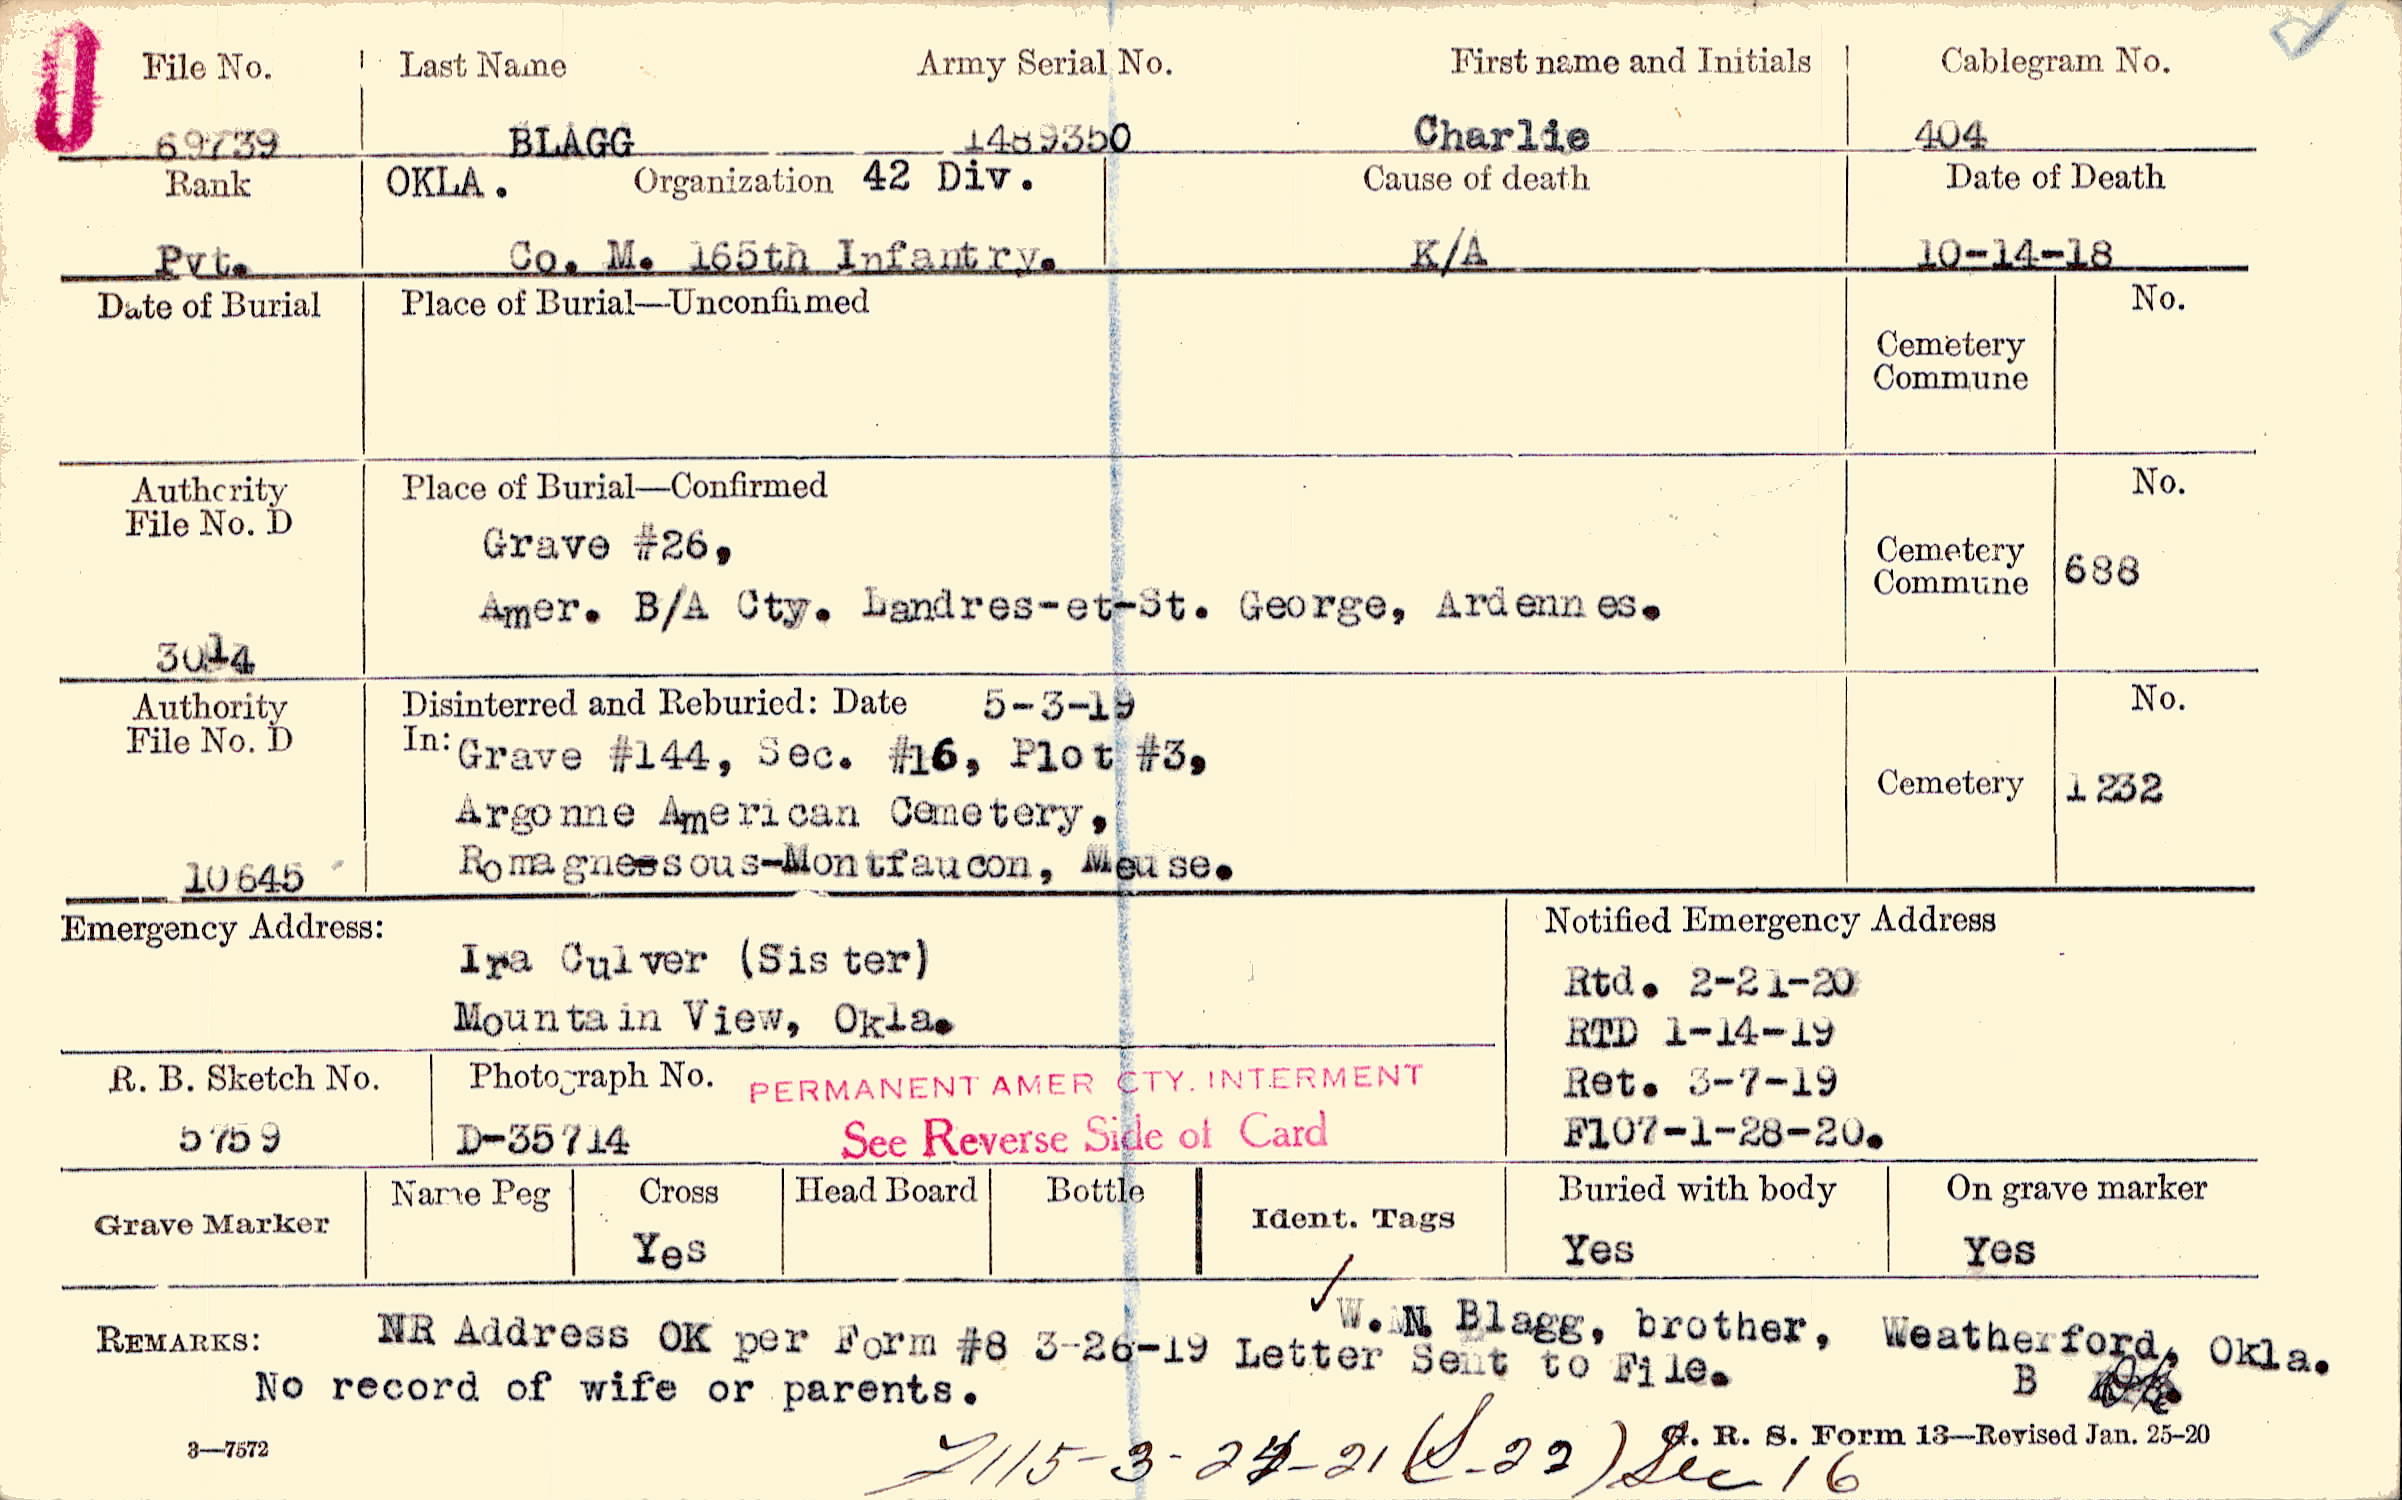 File No. Last Name Army Serial No. First name and Initials Cablegram No.
69739 BLAGG 1489350 Charlie 404
Rank OKLA. Organization 42 Div. Cause of death Date of Death
Pvt. Co. M. 165th Infantry. K/A 10-14-18
Date of Burial Place of Burial—Unconfirmed No.
Cemetery
Commune
Authority Place of Burial—Confirmed No.
File No. D
Grave #26,
Cemetery
Commune 688
Amer. B/A Cty. Landres-et-St. George, Ardennes.
3014
Authority Disinterred and Reburied: Date 5-3-19 No.
File No. D In: Grave #144, Sec. #16, Plot #3,
Cemetery 1232
Argonne American Cemetery,
10645 Romagne-sous-Montfaucon, Meuse.
Emergency Address: Notified Emergency Address
Ira Culver (Sister) Rtd. 2-21-20
Mountain View, Okla. RTD 1-14-19
R. B. Sketch No. Photograph No. PERMANENT AMER CTY. INTERMENT Ret. 3-7-19
5759 D-35714 See Reverse Side of Card F107-1-28-20.
Grave Marker Name Peg Cross Head Board Bottle Ident. Tags Buried with body On grave marker
Yes Yes Yes
W. N. Blagg, brother, Weatherford, Okla.
REMARKS: NR Address OK per Form #8 3-26-19 Letter Sent to File.
No record of wife or parents. B
3—7572 G. R. S. Form 13—Revised Jan. 25-20
(S-22) Sec 16